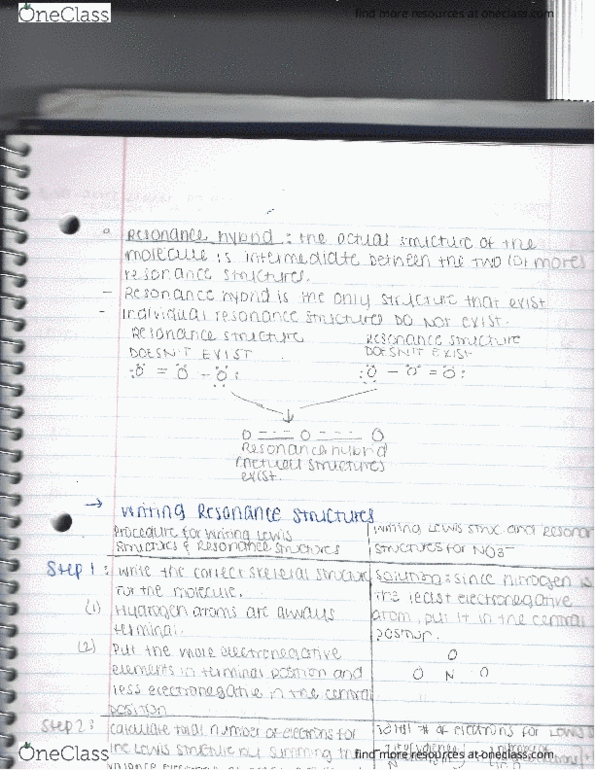 OneClass
find more resources at oneclass.com
Resonance hybrid : the actual structure of the
molecule is intermediate between the two (or more)
resonance structures.
- Resonance hybrid is the only structure that exist
- Individual resonance structures DO NOT exist.
Resonance structure
DOESN'T EXIST
:O = O - O:
Resonance structure
DOESN'T EXIST
:O - O = O:
O --- O --- O
Resonance hybrid
structures
exist.
→ Writing Resonance Structures
Procedure for writing Lewis
structures & Resonance structures
writing Lewis struc. and Resonan
structures for NO3-
Step 1: write the correct skeletal structure
for the molecule.
(1) Hydrogen atoms are always
terminal.
(2) Put the more electronegative
elements in terminal position and
less electronegative in the central
position
Solution: since nitrogen is
the least electronegative
atom, put it in the central
position.
O
O N O
Step 2: calculate total number of electrons for
the Lewis structure by summing the
valence
total # of electrons for Lewis
OneClass
find more resources at oneclass.com